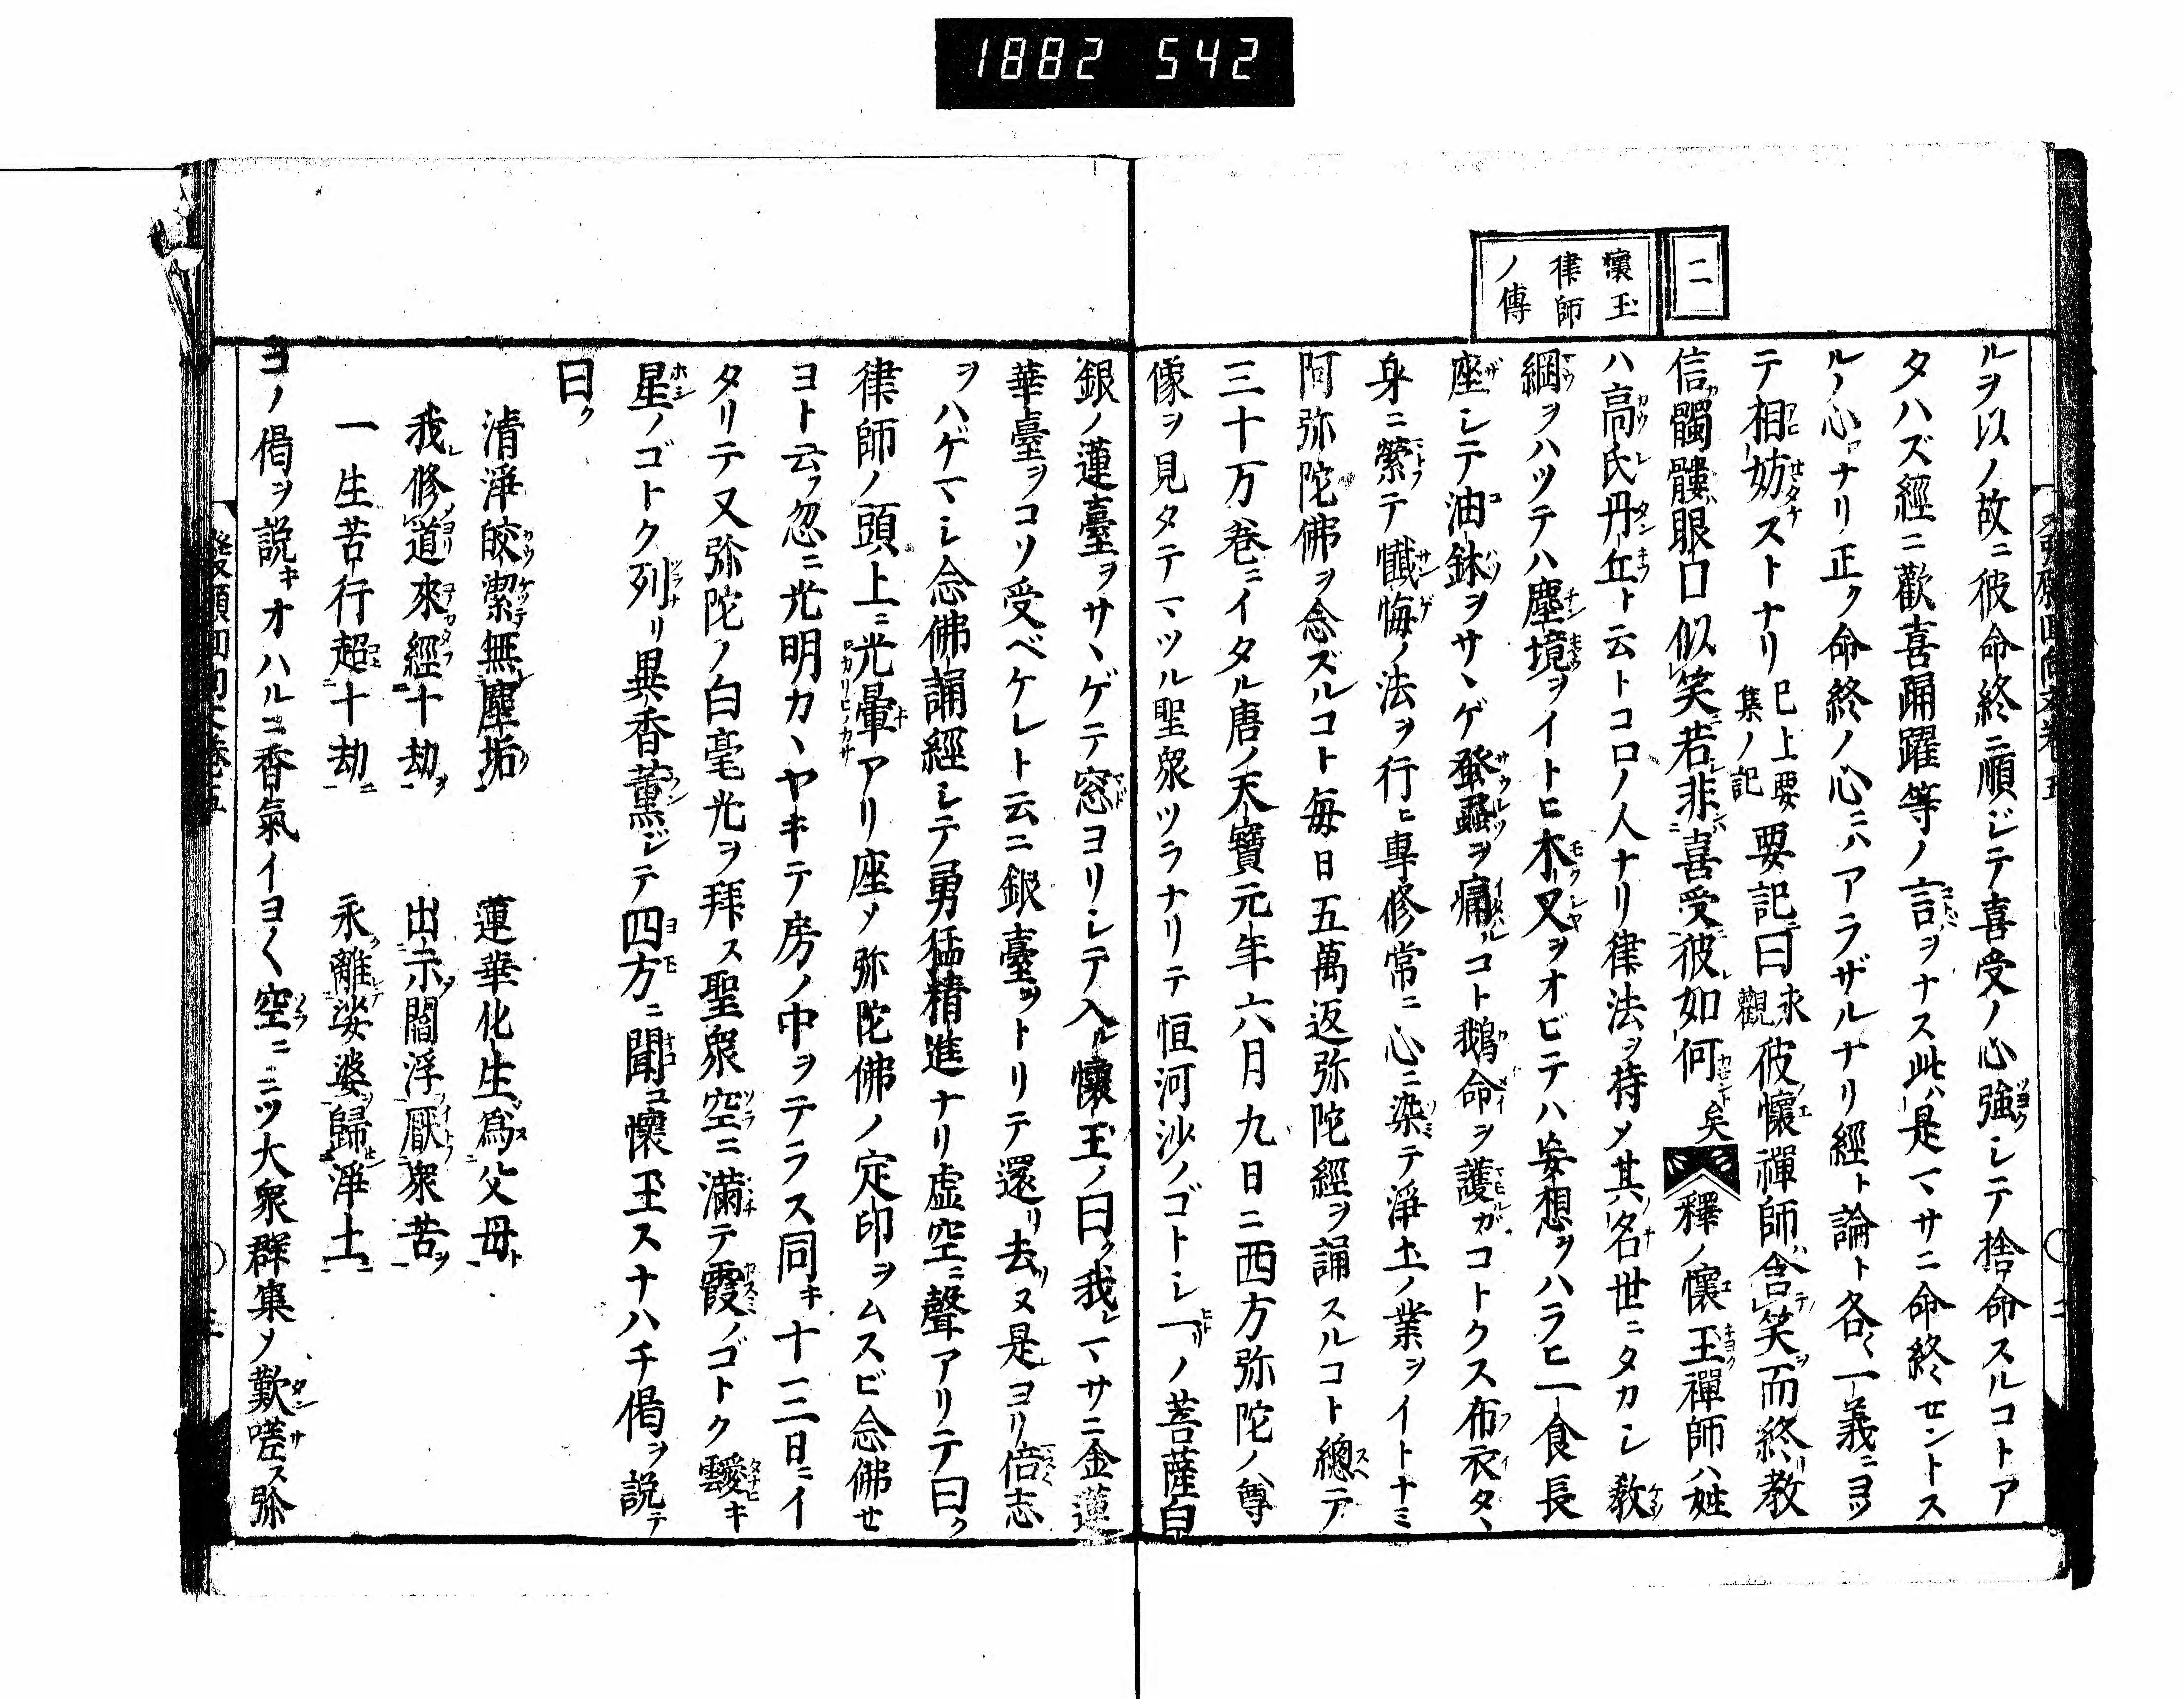 1882 542
二
懷玉
律師
ノ傳
ルヲ以ノ故ニ彼命終ニ順ジテ喜受ノ心強シテ捨命スルコトア
タハズ經ニ歡喜踊躍等ノ言ヲナス此ハ是マサニ命終セントス
ルノ心ナリ正ク命終ノ心ニハアラザルナリ經ト論ト各々一義ニヨツ
テ相妨ストナリ 已上要集ノ記 要記曰 永觀 彼懷禪師含笑而終教
信髑髏眼口似笑若非喜受彼如何矣 釋ノ懷玉禪師ハ姓
ハ高氏丹丘ト云トコロノ人ナリ律法ヲ持メ其名世ニタカシ教
綱ヲハツテハ塵境ヲイトヒ木叉ヲオビテハ妄想ヲハラヒ一食長
座シテ油鉢ヲサヽゲ蚤虱ヲ痛ルコト鵝命ヲ護ガコトクス布衣タヽ
身ニ縈テ懺悔ノ法ヲ行ヒ專修常ニ心ニ染テ淨土ノ業ヲイトナミ
阿弥陀佛ヲ念ズルコト毎日五萬返弥陀經ヲ誦スルコト總テ
三十万巻ニイタル唐ノ天寶元年六月九日ニ西方弥陀ノ尊
像ヲ見タテマツル聖衆ツラナリテ恒河沙ノゴトシ一リノ菩薩白
銀ノ蓮臺ヲサヽゲテ窓ヨリシテ入ル懷玉ノ曰ク我レマサニ金蓮
華臺ヲコソ受ベケレト云ニ銀臺ツトリテ還リ去ヌ是ヨリ倍志
ヲハゲマシ念佛誦經シテ勇猛精進ナリ虚空ニ聲アリテ曰ク
律師ノ頭上ニ光暈アリ座メ弥陀佛ノ定印ヲムスビ念佛セ
ヨト云フ忽ニ光明カヽヤキテ房ノ中ヲテラス同キ十三日ニイ
タリテ又弥陀ノ白毫光ヲ拜ス聖衆空ニ滿テ霞ノゴトク靉キ
星ノゴトク列リ異香薰ジテ四方ニ聞ユ懷玉スナハチ偈ヲ説テ
曰ク
清淨皎潔無塵垢 蓮華化生爲父母
我修道來經十劫 出示閻浮厭衆苦
一生苦行超十劫 永離娑婆歸淨土
ヨノ偈ヲ説キオハルニ香氣イヨ〱空ニミツ大衆群集メ歎嗟ス弥